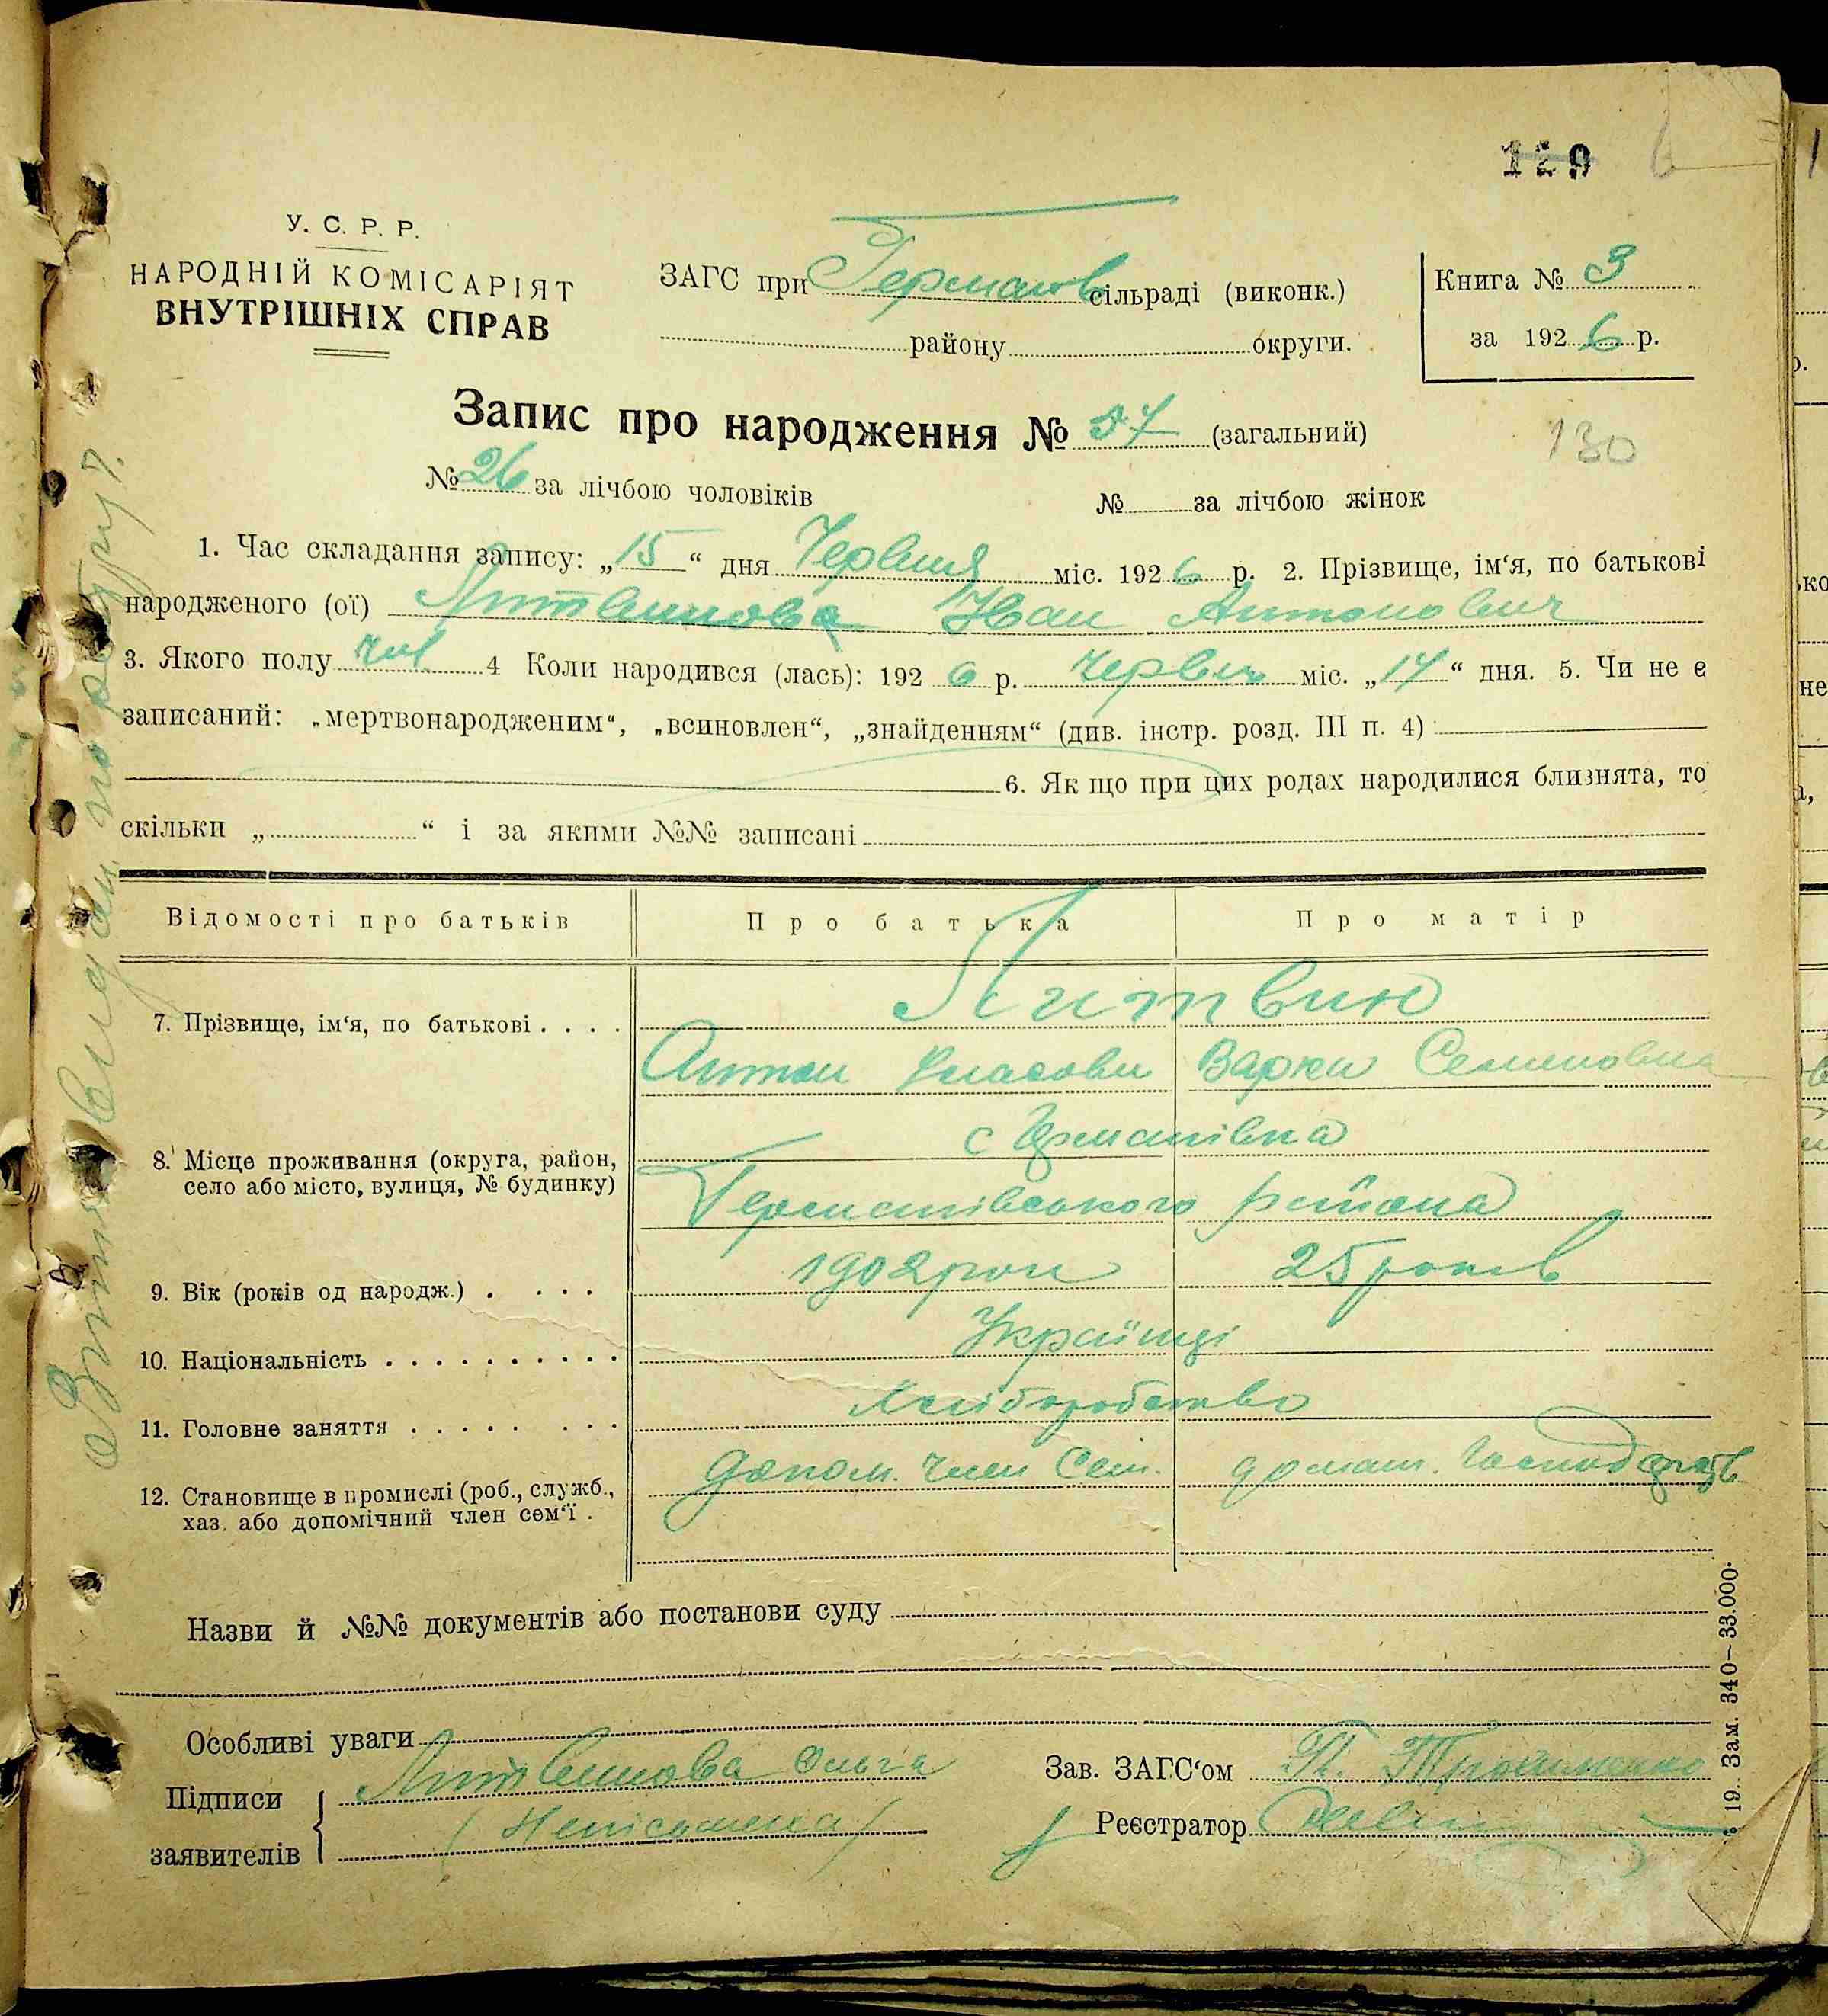 129
У. С. Р. Р.
НАРОДНІЙ КОМІСАРІЯТ
ВНУТРІШНІХ СПРАВ
ЗАГС при Германов сільраді (виконк.)
району округи.
Книга № 3
за 1926 р.
Запис про народження № 57 (загальний)
130
№ 26 за лічбою чоловіків № за лічбою жінок
1. Час складання запису: „15“ дня Червня міс. 1926 р. 2. Прізвище, ім‘я, по батькові
народженого (ої) Литвинова Іван Антонович
3. Якого полу чол 4 Коли народився (лась): 1926 р. Червня міс. „14“ дня. 5. Чи не є
записаний: „мертвонародженим“, „всиновлен“, „знайденням“ (див. інстр. розд. III п. 4)
6. Як що при цих родах народилися близнята, то
скільки „ “ і за якими №№ записані
Відомості про батьків Про батька Про матір
Литвин
7. Прізвище, ім‘я, по батькові . . . .
Антон Власови Варка Семеновна
с Германівка
8. Місце проживання (округа, район,
село або місто, вулиця, № будинку)
Германівського района
9. Вік (років од народж.) . . . . 1902 рок 25 років
10. Національність . . . . . . . . . . Українці
11. Головне заняття . . . . . . . . Хліборобство
12. Становище в промислі (роб., служб.,
хаз. або допомічний член сем‘ї .
допом. член Сем. домаш. господарств
Назви й №№ документів або постанови суду
Особливі уваги
Підписи
заявителів
Литвинова Ольга
(Неписьмена)
Зав. ЗАГС‘ом
Реєстратор
19. Зам. 340—33.000.